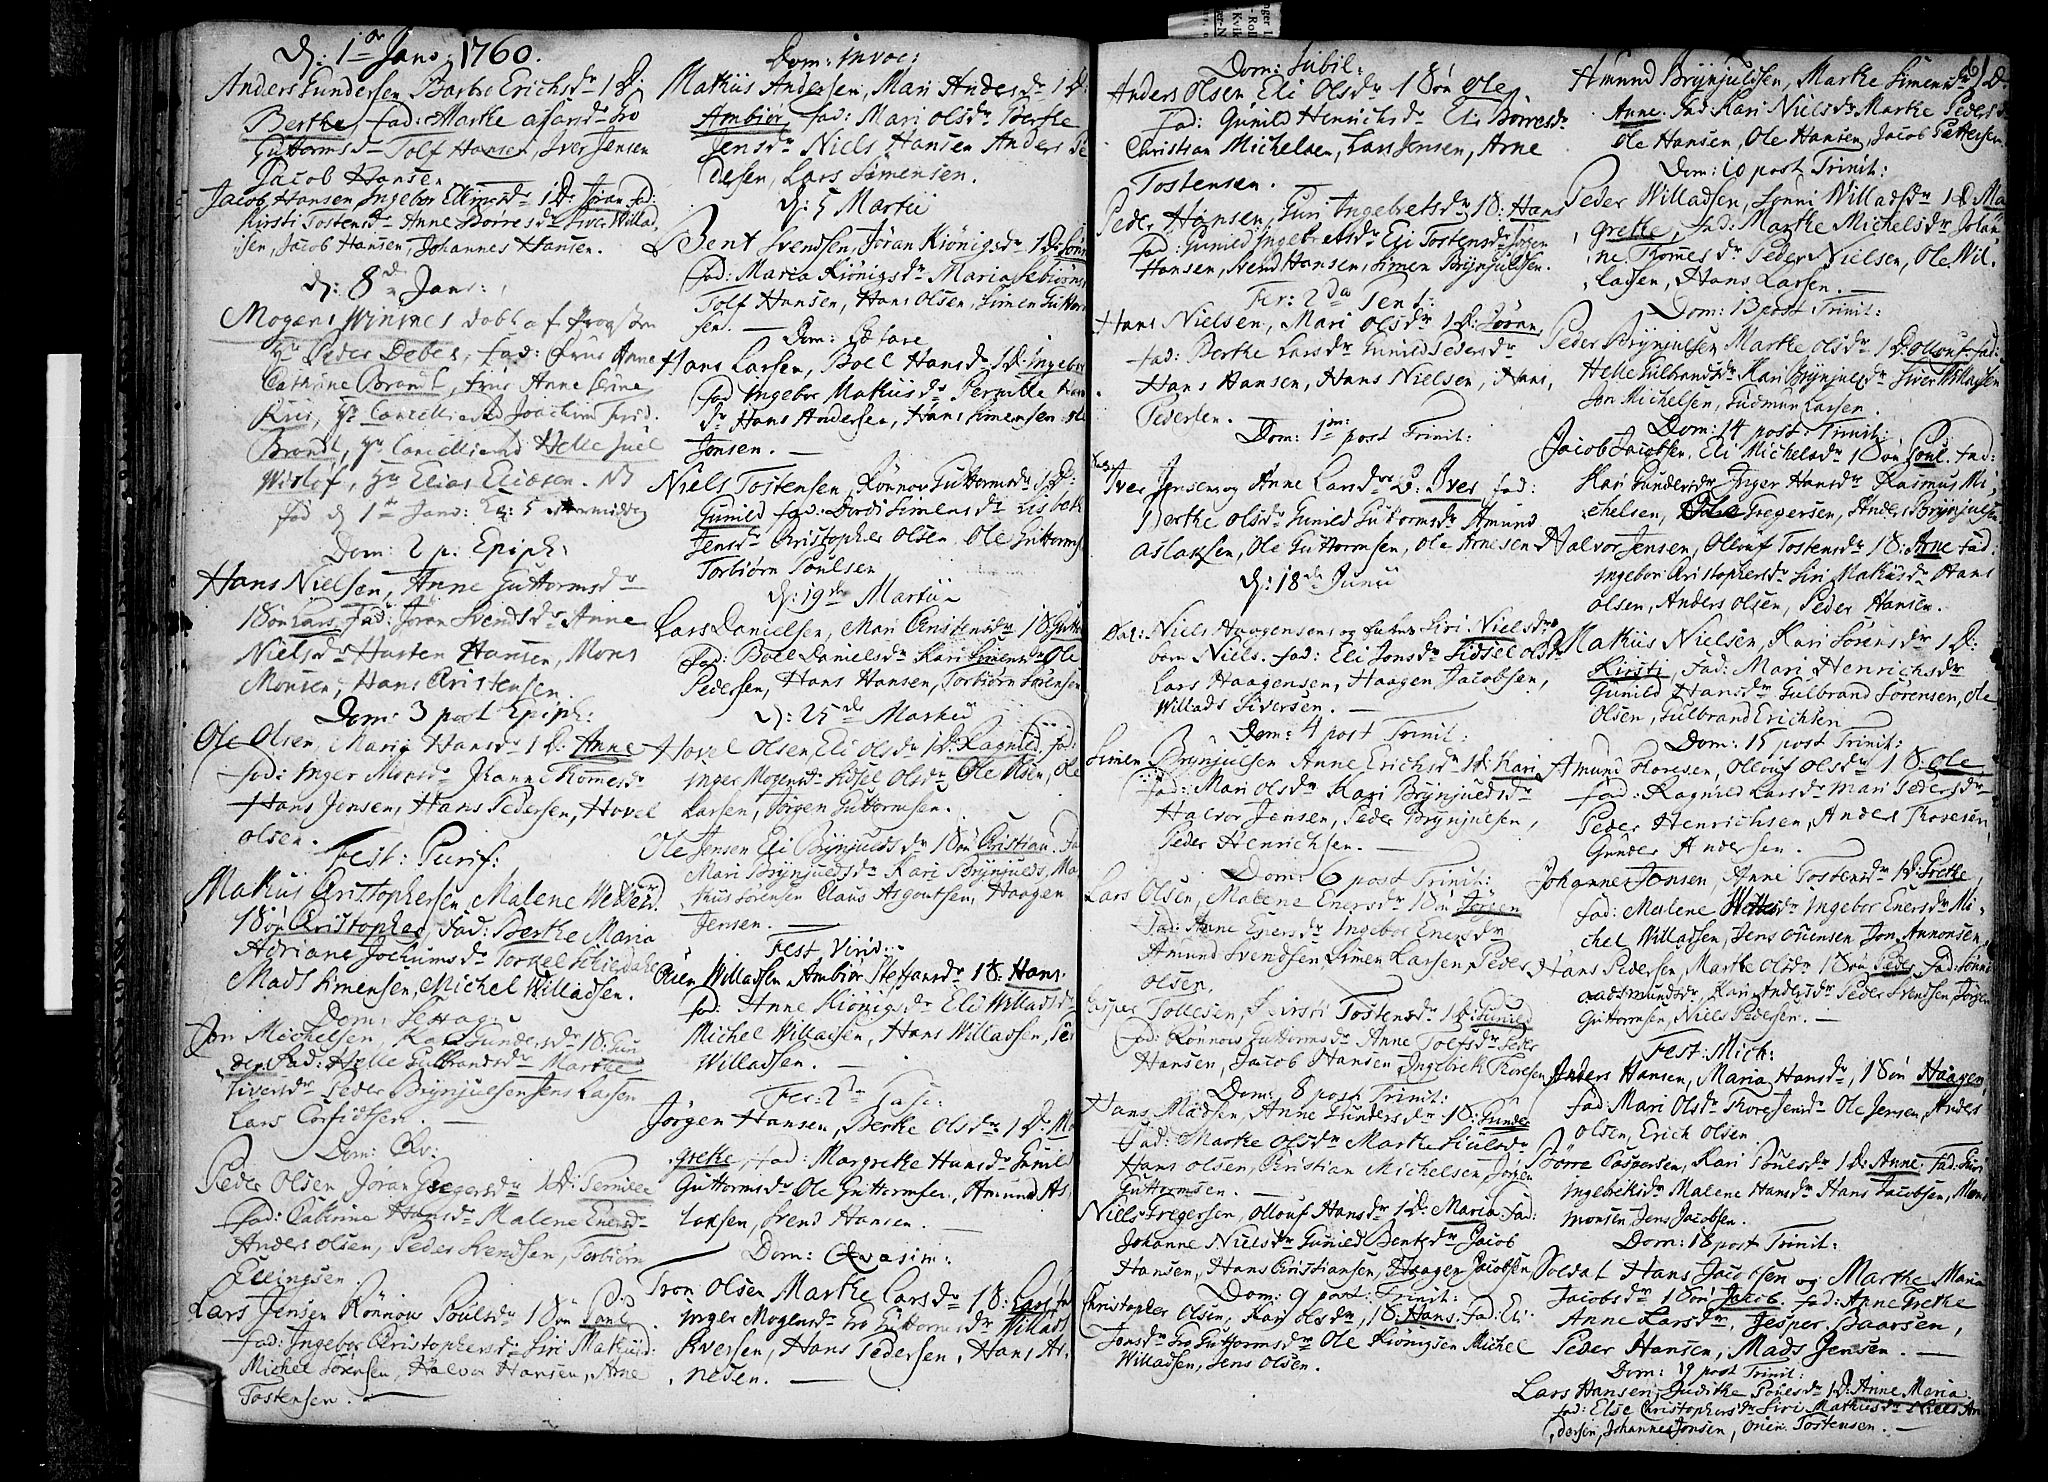 D: 1ᵒʳ Janv: 1760.
Anders Gundersen Barbre Erichsdr 1 D:
Berthe, fad: Marthe Gro
Guttormsdr Tolf Hansen, Iver Jensen
Jacob Hansen
Jacob Hansen Ingebor 1 D: Jøran fad:
Kirsti Tostensdr Anne Børresdr Siver Willad
sen, Jacob Hansen Johannes Hansen.
D: 8de Janv:
Mogens Winsnes døbt af Provsten
Hr Peder Debes, fad: Frue Anne
Cathrine Brandt, frue Anne
Hr Joachim Frid:
Brandt, Hr Helle Juel
Wisløf, Hr Elias Eliesen. NB
fød d 1te Janv: Kl: 5 eftermiddag
Dom: 2 p: Epiph:
Hans Nielsen, Anne Guttormsdr
1 Søn Lars, fad: Jøran Svendsdr Anne
Nielsdr Hansen, Mons
Monsen, Hans Christensen.
Dom: 3 post Epiph:
Ole Olsen, Maria Hansdr 1 D: Anne
fad: Inger Monsdr Johanne Thomesdr
Hans Jensen, Hans Pedersen, Hovel
Olsen.
Fest: Purif:
Mathius Christophersen, Malene
1 Søn Christopher, fad: Berthe Maria
Adriane Jochumsdr Torkel
Mads Simensen, Michel Willadsen.
Dom: Septuag:
Jon Michelsen, Kari Gundersdr 1 S: Gun
der, fad: Helle Gulbrandsdr Marthe
Siversdr Peder Brynjulsen Jens Larsen
Lars
Dom:
Peder Olsen Jøran Gregersdr 1 D: Pernille
fad: Cathrine Hansdr Malene Enersdr
Anders Olsen, Peder Svendsen, Torbiørn
Ellingsen.
Lars Jensen Rønnov Poulsdr 1 Søn Poul
fad: Ingebor Christophersdr Siri Mathiisd:
Michel Sørensen, Halvor Hansen, Arne
Tostensen.
Dom: Invoc:
Mathiis Andersen, Mari Andersdr 1 D:
Ambiør, fad: Mari Olsdr Berthe
Jensdr Niels Hansen Anders Pe
dersen, Lars Simensen.
D: 5 Martii
Bent Svendsen, Jøran Kiønigsdr 1 D: Sønni
fad: Maria Kiønigsdr Maria
Tolf Hansen, Hans Olsen, Simen Guttorm
sen.
Dom: Letare
Hans Larsen, Boel Hansdr 1 D: Ingebor
fad Ingebor Mathiisdr Pernille Han
dr Hans Andersen, Hans Simensen Ole
Jonsen.
Niels Tostensen, Rønnov Guttormsdr 1 D:
Gunild fad: Simensdr Lisbeth
Jensdr Christopher Olsen, Ole Guttorms
Torbiørn Poulsen
D: 19de Martii
Lars Danielsen, Mari Christensdr 1 S: Gutto
fad: Boel Danielsdr Kari Simensdr Ole
Pedersen, Hans Hansen, Torbiørn Sørensen
D: 25de Martii
Hovel Olsen Eli Olsdr 1 D: Ragnild, fad:
Inger Mogensdr Sidsel Olsdr Ole Olsen, Ole
Larsen, Jørgen Guttormsen.
Ole Jensen Eli Brynjuldsdr 1 Søn Christian. fad
Mari Brynjuldsdr Kari Brynjulds, Ma
thius Sørensen Claus Haagen
Jensen.
Fest Virid:
Willadsen Ambiør Steffansdr 1 S: Hans.
fad: Anne Kiønigsdr Eli Willadsdr
Michel Willadsen, Hans Willadsen, Pe
Willadsen.
Fer: 2da Pasc:
Jørgen Hansen, Berthe Olsdr 1 D: Ma
grethe, fad: Margrethe Hansdr Gunil
Guttormsdr Ole Guttormsen, Amund As,
laxsen, Svend Hansen.
Dom: Qvasim:
Tron Olsen Marthe Larsdr 1 S: Lars, fad
Inger Mogensdr Gro Guttormsdr Willads
Kversen, Hans Pedersen, Hans Ar,
nesen.
Dom: Jubil:
Anders Olsen Eli Olsdr 1 Søn Ole,
fad: Gunild Henrichsdr Eli Børresdr
Christian Michelsen, Lars Jensen, Arne
Tostensen.
Peder Hansen, Guri Ingebretsdr 1 S: Hans
fad: Gunild Ingebretsdr Eli Tostensdr Jørgen
Hansen, Svend Hansen, Simen Brynjulsen.
Fer: 2da Pent:
Hans Nielsen, Mari Olsdr 1 D: Jøran,
fad: Berthe Larsdr Gunild Pedersdr
Hans Hansen, Hans Nielsen, Hans,
Pedersen.
Dom: 1m post Trinit:
Iver Jensen og Anne Larsdr Iver, fad:
Berthe Olsdr Gunild Guttormsdr Amund
Aslaxsen, Ole Guttormsen, Ole Arnesen
D: 18de Junii
Niels Haagensens og Siri Nielsdr
barn Niels. fad: Eli Jonsdr Sidsel Olsdr
Lars Haagensen, Haagen Jacobsen,
Willads Siversen.
Dom: 4 post Trinit:
Simen Brynjulsen Anne Erichsdr 1 D: Kari
fad: Mari Olsdr Kari Brynjuldsdr
Halvor Jensen, Peder Brynjulsen,
Peder Henrichsen.
Dom: 6 post Trinit:
Lars Olsen, Malene Enersdr 1 Søn Jørgen
fad: Anne Enersdr Ingebor Enersdr
Amund Svendsen, Simen Larsen, Peder
Olsen.
Casper Tollesen, Kirsti Tostensdr 1 D: Gunild
fad: Rønnov Guttormsdr Anne Tolfsdr Peder
Hansen, Jacob Hansen, Ingebrit Thoresen
Dom: 8 post Trinit:
Hans Madsen, Anne Gundersdr 1 S: Gunder
fad: Marthe Olsdr Marthe
Hans Olsen, Christian Michelsen Jørgen
Guttormsen.
Niels Gregersen, Ollouf Hansdr 1 D: Maria. fad:
Johanne Nielsdr Gunild Bentsdr Jacob
Hansen, Hans Christiansen, Haagen Jacobsen
Dom: 9 post Trinit:
Christopher Olsen, Kari Olsdr, 1 S: Hans, fad: Eli
Jonsdr Gro Guttormsdr Ole Kiønigsen Michel
Willadsen, Jens Olsen.
61
Amund Brynjuldsen, Marthe Simensdr 1 D:
Anne, fad: Kari Nielsdr Marthe Pedersd
Ole Hansen, Ole Hansen, Jacob Pettersen.
Dom: 10 post Trinit:
Peder Willadsen, Sønni Willadsdr 1 D: Ma
grethe, fad: Marthe Michelsdr Johan
ne Thomesdr Peder Nielsen, Ole Wil,
ladsen, Hans Larsen.
Dom: 13 post Trinit:
Peder Brynjulsen Marthe Olsdr 1 D: Ollouf fad:
Helle Gulbrandsdr Kari Brynjulsdr Siver Willadsen
Jon Michelsen, Gudmun Larsen.
Dom: 14 post Trinit:
Jacob Jacobsen, Eli Michelsdr 1 Søn Poul. fad:
Kari Gundersdr Inger Hansdr Rasmus Mi,
chelsen, Gregersen, Anders Brynjulsen
Halvor Jensen, Ollouf Tostensdr 1 S: Arne fad:
Ingebor Christophersdr Siri Mathiisdr Hans
Olsen, Anders Olsen, Peder Hansen.
Mathiis Nielsen, Kari Sørensdr 1 D:
Kirsti, fad: Mari Henrichsdr
Gunild Hansdr Gulbrand Sørensen, Ole
Olsen, Gulbrand Erichsen
Dom: 15 post Trinit:
Amund Thoresen, Ollouf Olsdr 1 S: Ole,
fad: Ragnild Larsdr Mari Pedersdr
Peder Henrichsen, Anders Thoresen,
Gunder Andersen.
Johannes Jonsen, Anne Tostensdr 1 D: Grethe,
fad: Malene Ingebor Enersdr Mi,
chel Willadsen, Jens Jon Annonsen,
Hans Pedersen, Marthe Olsdr 1 Søn Peder, fad: Sønni
Aadsmundsdr, Kari Andersdr Peder Svendsen, Jørgen
Guttormsen, Niels Pedersen.
Fest: Mich:
Anders Hansen, Maria Hansdr, 1 Søn Haagen,
fad: Mari Olsdr Thore Jensdr Ole Jensen, Anders
Olsen, Erich Olsen.
Børre Caspersen, Kari Poulsdr 1 D: Anne. fad: Guri
Ingebretsdr Malene Hansdr Hans Jacobsen, Mons
Monsen Jens Jacobsen.
Dom: 18 post Trinit:
Soldat Hans Jacobsen og Marthe Maria
Jacobsdr 1 Søn Jakob. fad: Anne Grethe
Anne Larsdr, Jesper Baarsen,
Peder Hansen, Mads Jensen.
Dom: 19 post Trinit:
Lars Hansen, Judithe Povelsdr 1 D: Anne Maria
fad: Else Christophersdr Siri Mathiisdr Niels An
dersen, Johannes Jonsen, Onen Tostensen.